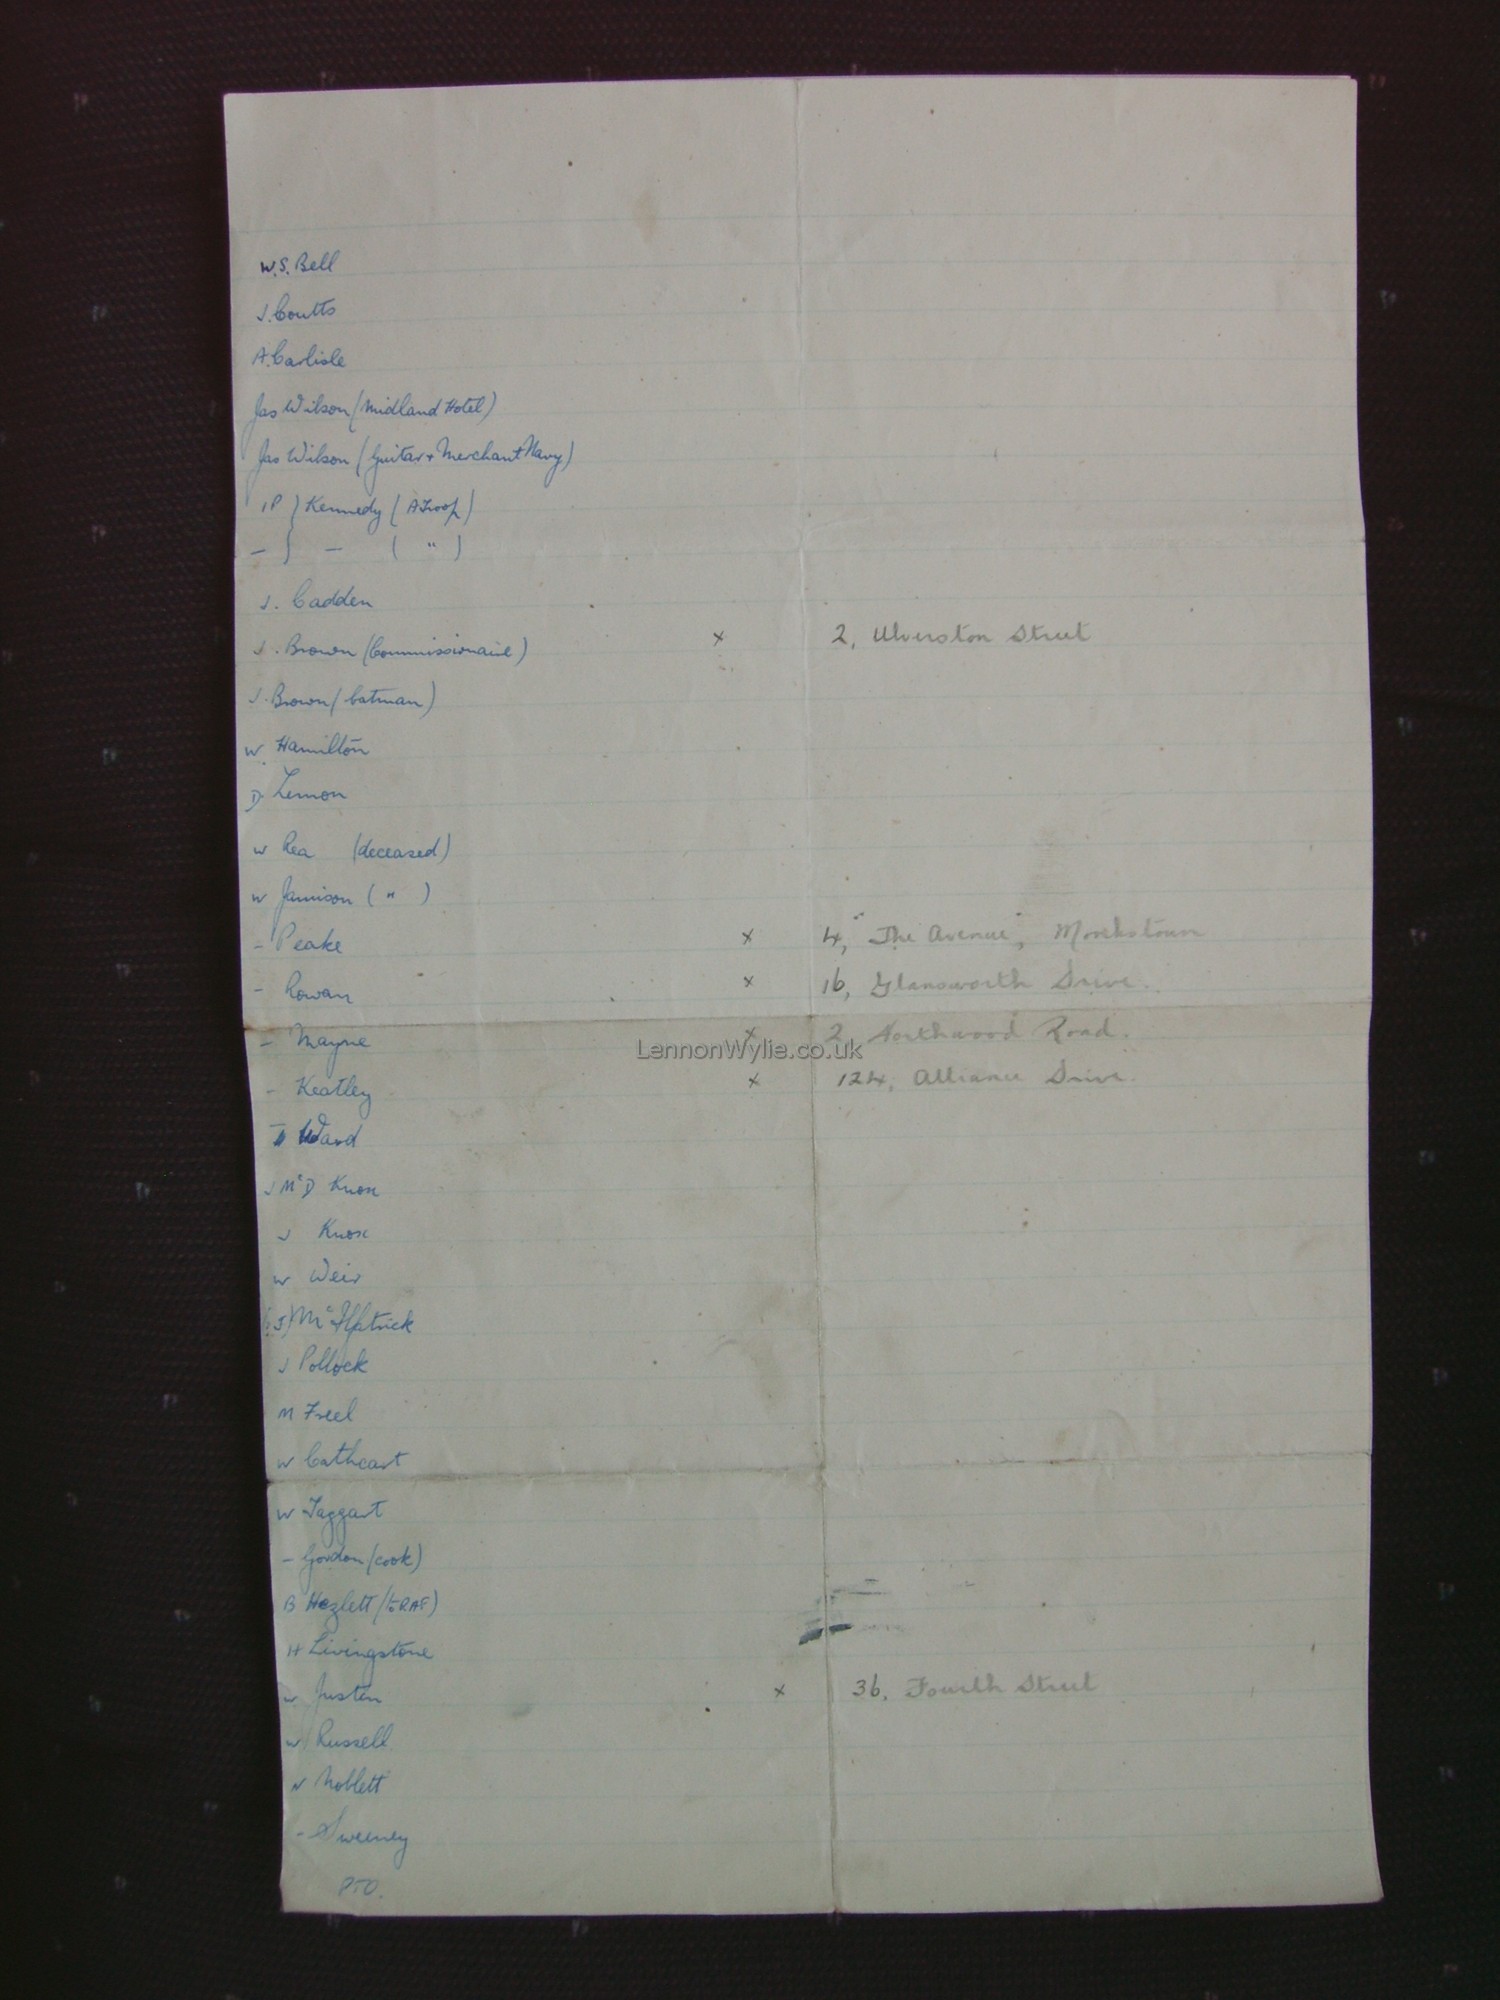 W.S. Bell
J. Coutts
A. Carlisle
Jas Wilson (Midland Hotel)
Jas Wilson (Guitar + Merchant Navy)
Kennedy (A Troop)
— } — ( " )
J. Cadden
J. Brown (Commissionaire) x 2, Ulverston Street
J. Brown (batman)
W. Hamilton
D Lemon
W Rea (deceased)
W Jamison ( " )
- Peake x 4, "The Avenue", Monkstown
- Rowan x 16, Glansworth Drive.
- Mayne x 2 Northwood Road.
LennonWylie.co.uk
- Keatley x 124, Alliance Drive.
Ward
J McD Knox
J Knox
W Weir
(? J) McIlpatrick
J Pollock
M Freel
W Cathcart
W Taggart
- Gordon (cook)
B Hezlett (to RAF)
H Livingstone
W Justin x 36, Fourth Street
W Russell
W Noblett
- Sweeney
PTO.